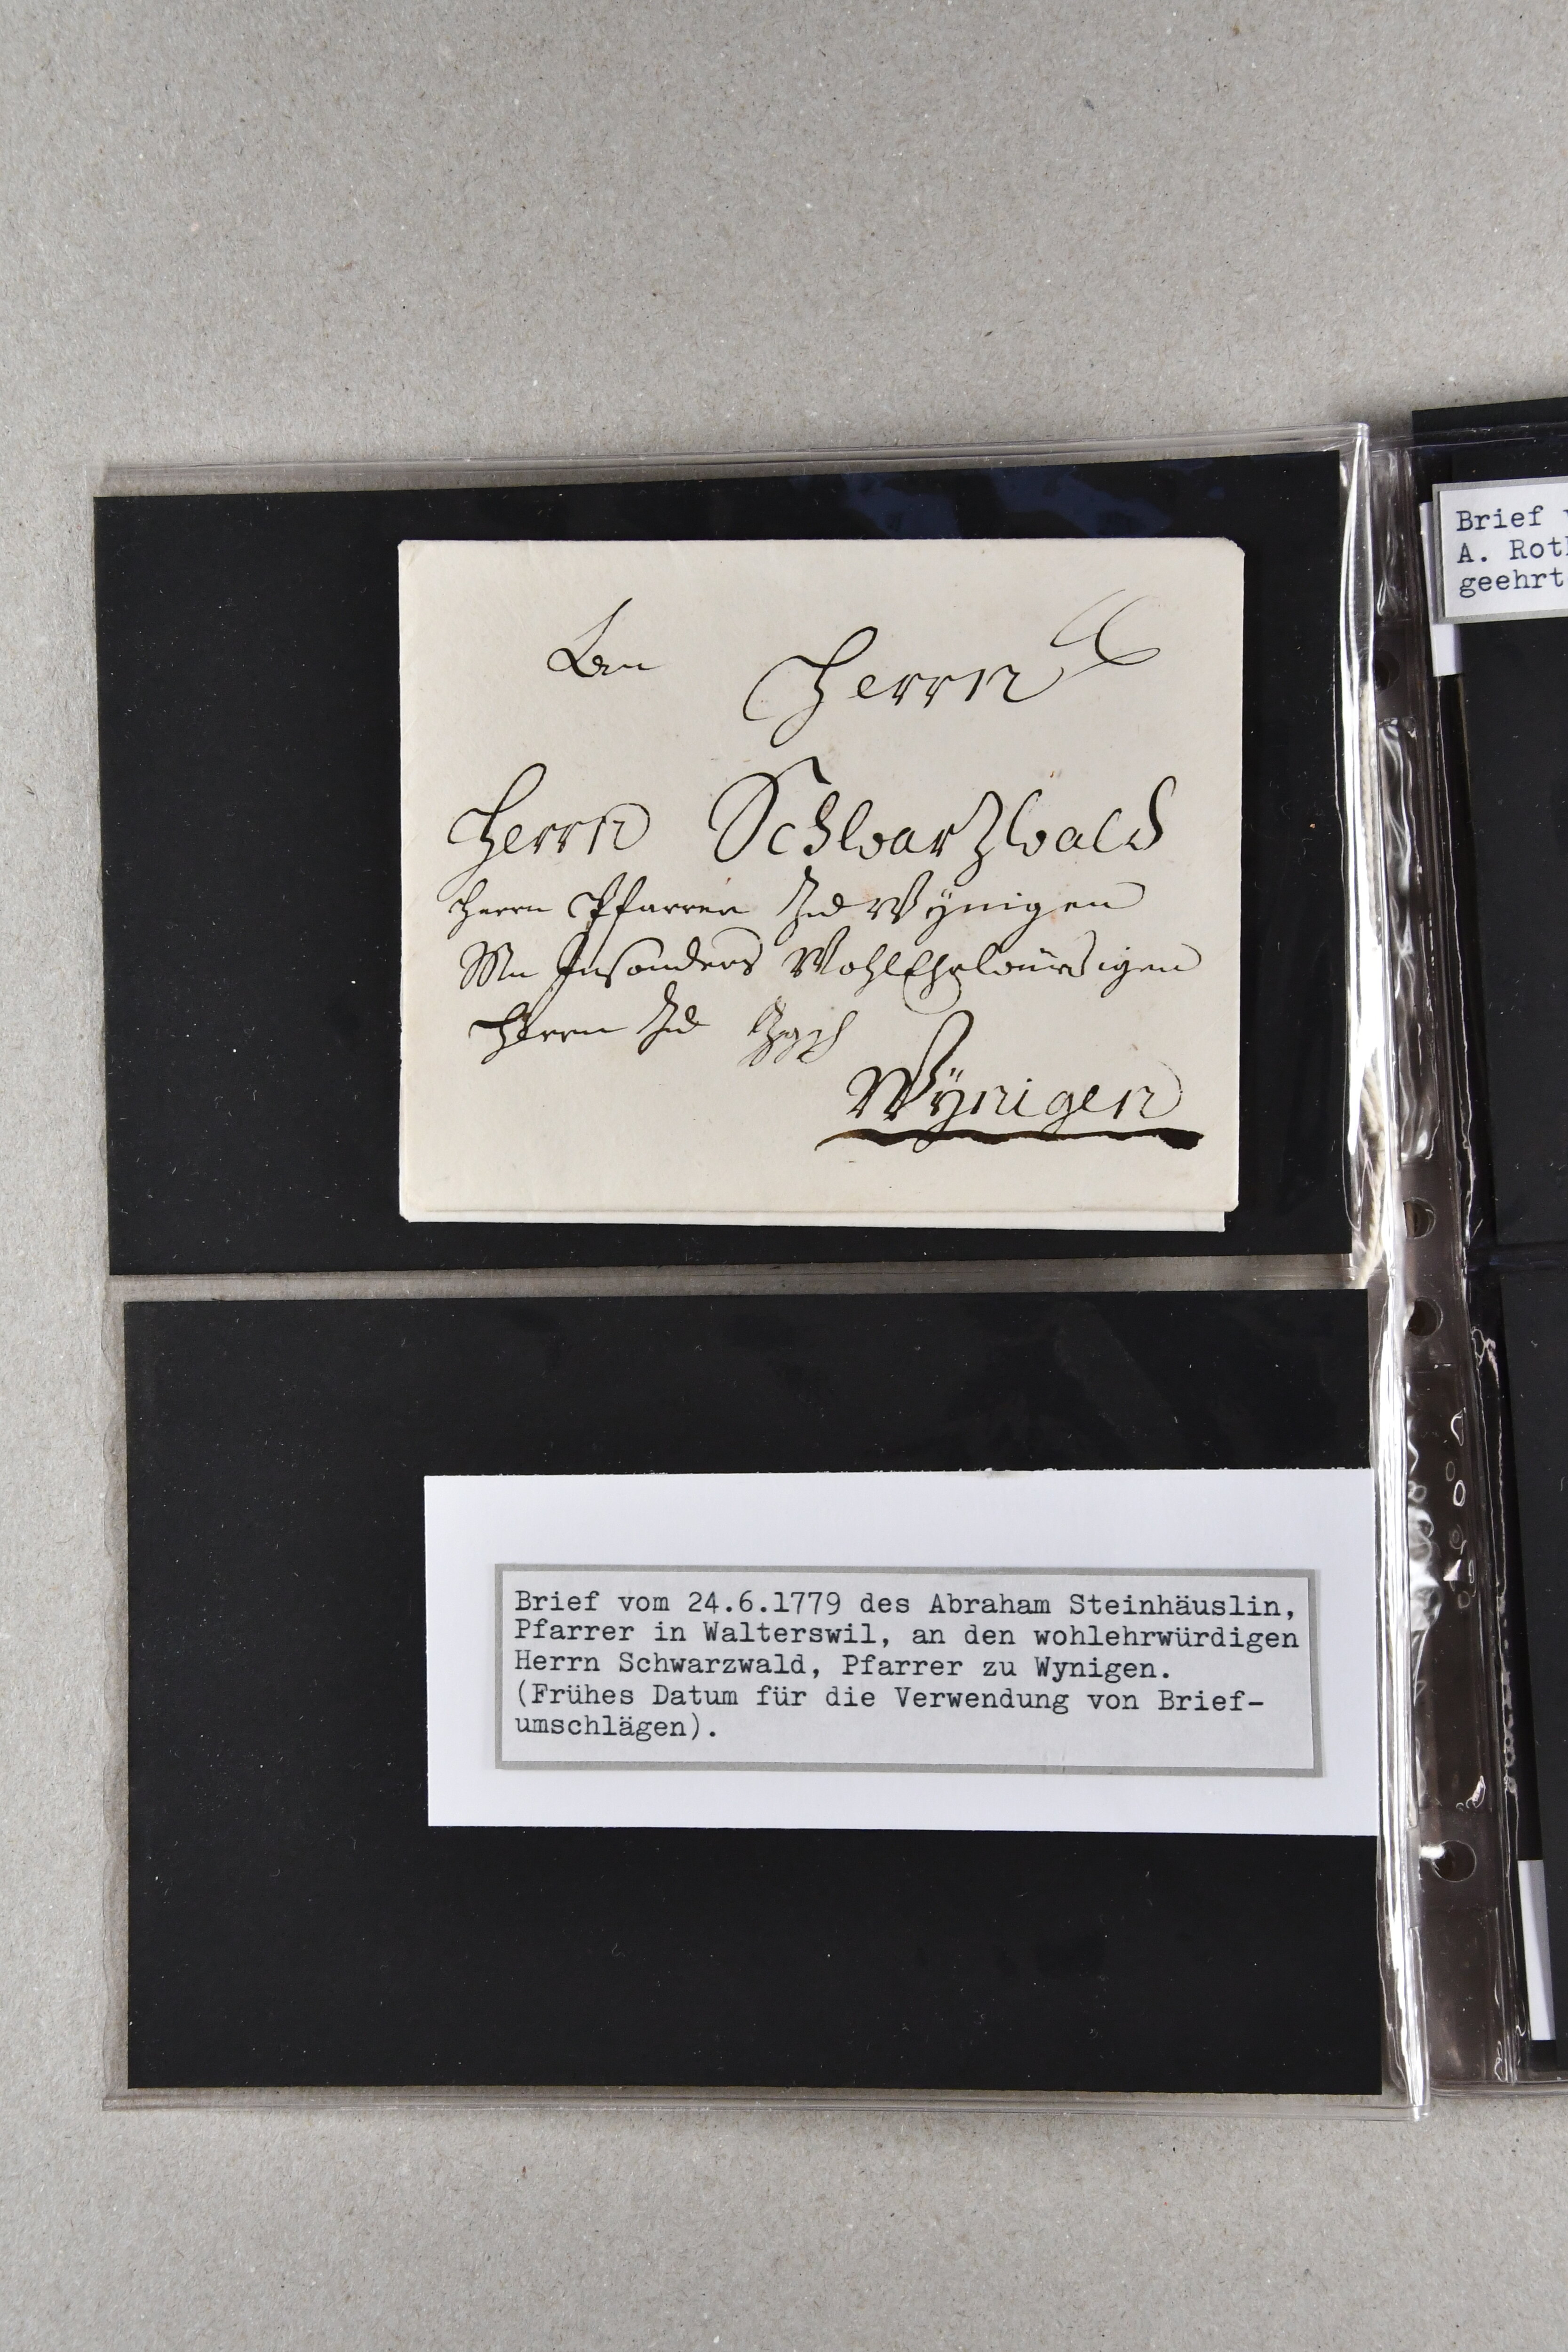 Herrn
Herrn Schwarzwald
Herrn Pfarrer zu Wÿnigen
Mn Insonders WohlEhrwürdigen
Herrn zu
Wÿnigen
Brief vom 24.6.1779 des Abraham Steinhäuslin,
Pfarrer in Walterswil, an den wohlehrwürdigen
Herrn Schwarzwald, Pfarrer zu Wynigen.
(Frühes Datum für die Verwendung von Brief-
umschlägen).
Brief
A. Rot
geehrt